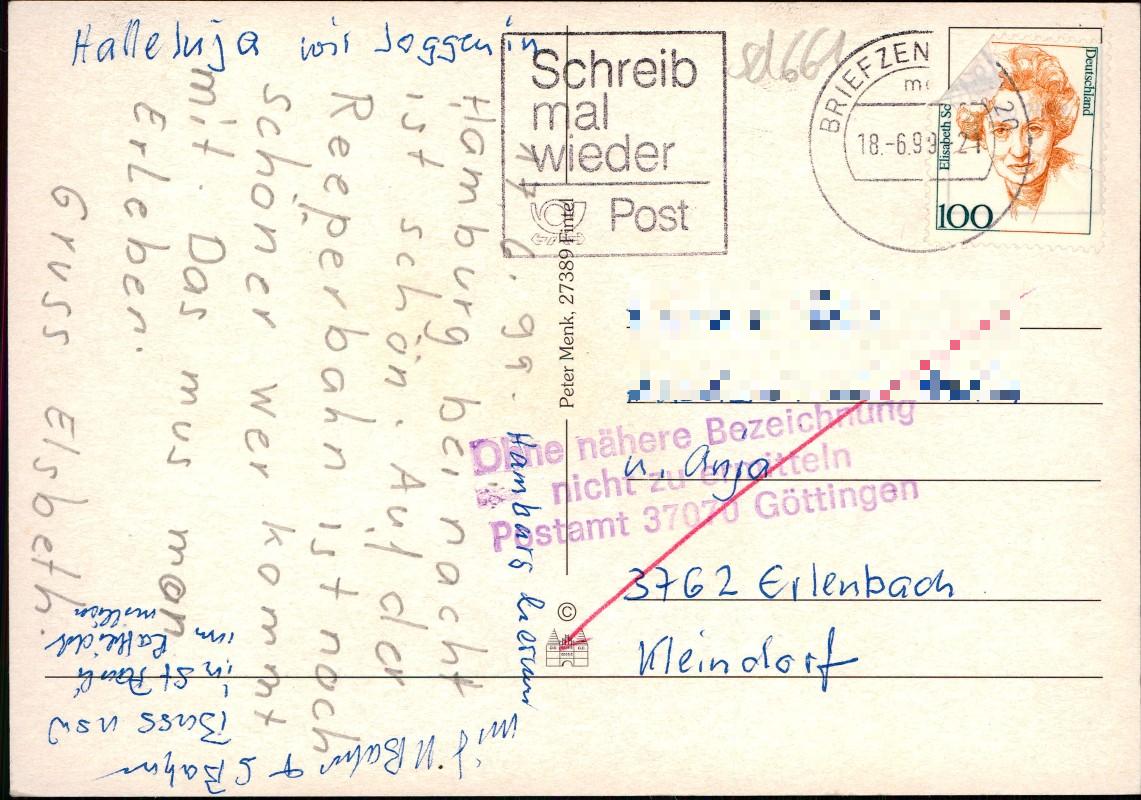 Halleluja wir joggen in
Hamburg herum
mit U Bahn + S Bahn
Buss usw
in St Pauli
im
17.6.99.
Hamburg bei nacht
ist schön. Auf der
Reeperbahn ist noch
schöner wer kommt
mit. Das mus man
Erleben.
Gruss Elsbeth.
Peter Menk, 27389 Fintel
©
Schreib
mal
wieder
Post
BRIEFZEN
18.-6.99
21
20
Deutschland
Elisabeth Sc
100
Ohne nähere Bezeichnung
nicht zu ermitteln
Postamt 37070 Göttingen
u. Anja
3762 Erlenbach
Kleindorf